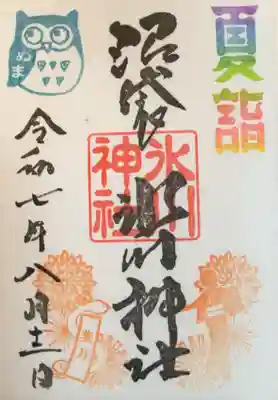 夏詣
沼袋氷川神社
氷川
神社
ぬま
令和七年八月十一日